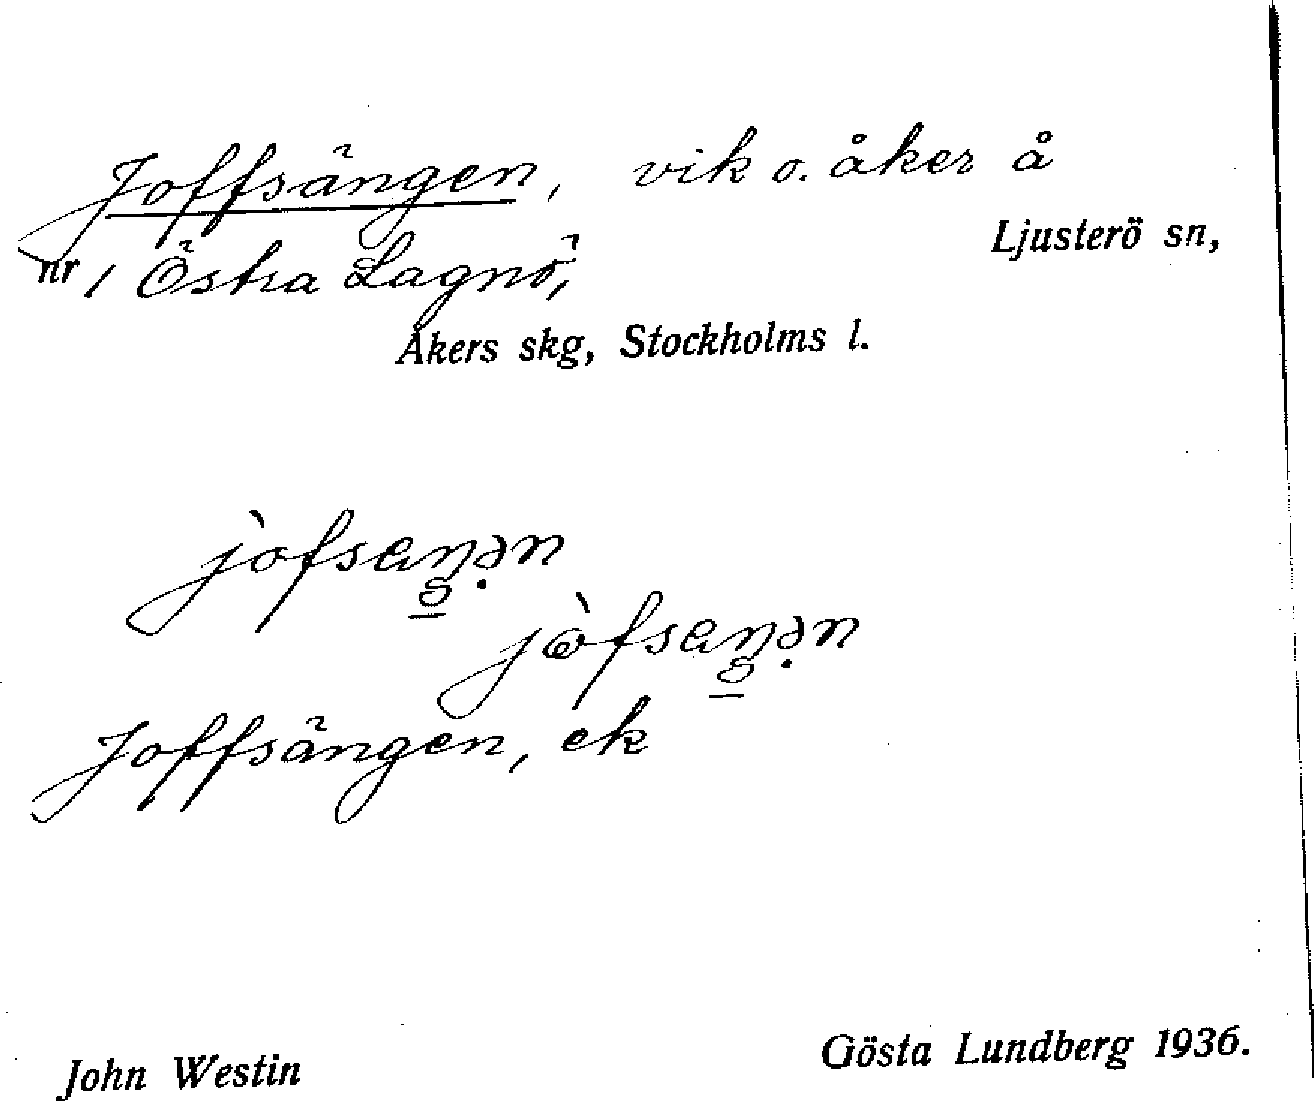 Joffsängen, vik o. åker å
Ljusterö sn,
nr 1 Östra Lagnö,
Åkers skg, Stockholms l.
Joffsängen, ek
John Westin
Gösta Lundberg 1936.